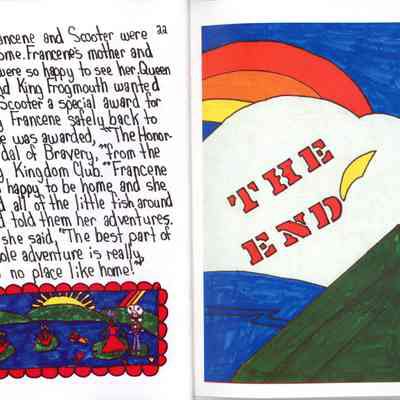 22
ancene and Scooter were
ome. Francene's mother and
were so happy to see her. Queen
nd King Frogmouth wanted
Scooter a special award for
g Francene safely back to
e was awarded, "The Honor-
dal of Bravery," from the
g Kingdom Club." Francene
s happy to be home and she
d all of the little fish around
d told them her adventures.
she said, "The best part of
ole adventure is really,
s no place like home!"
THE
END